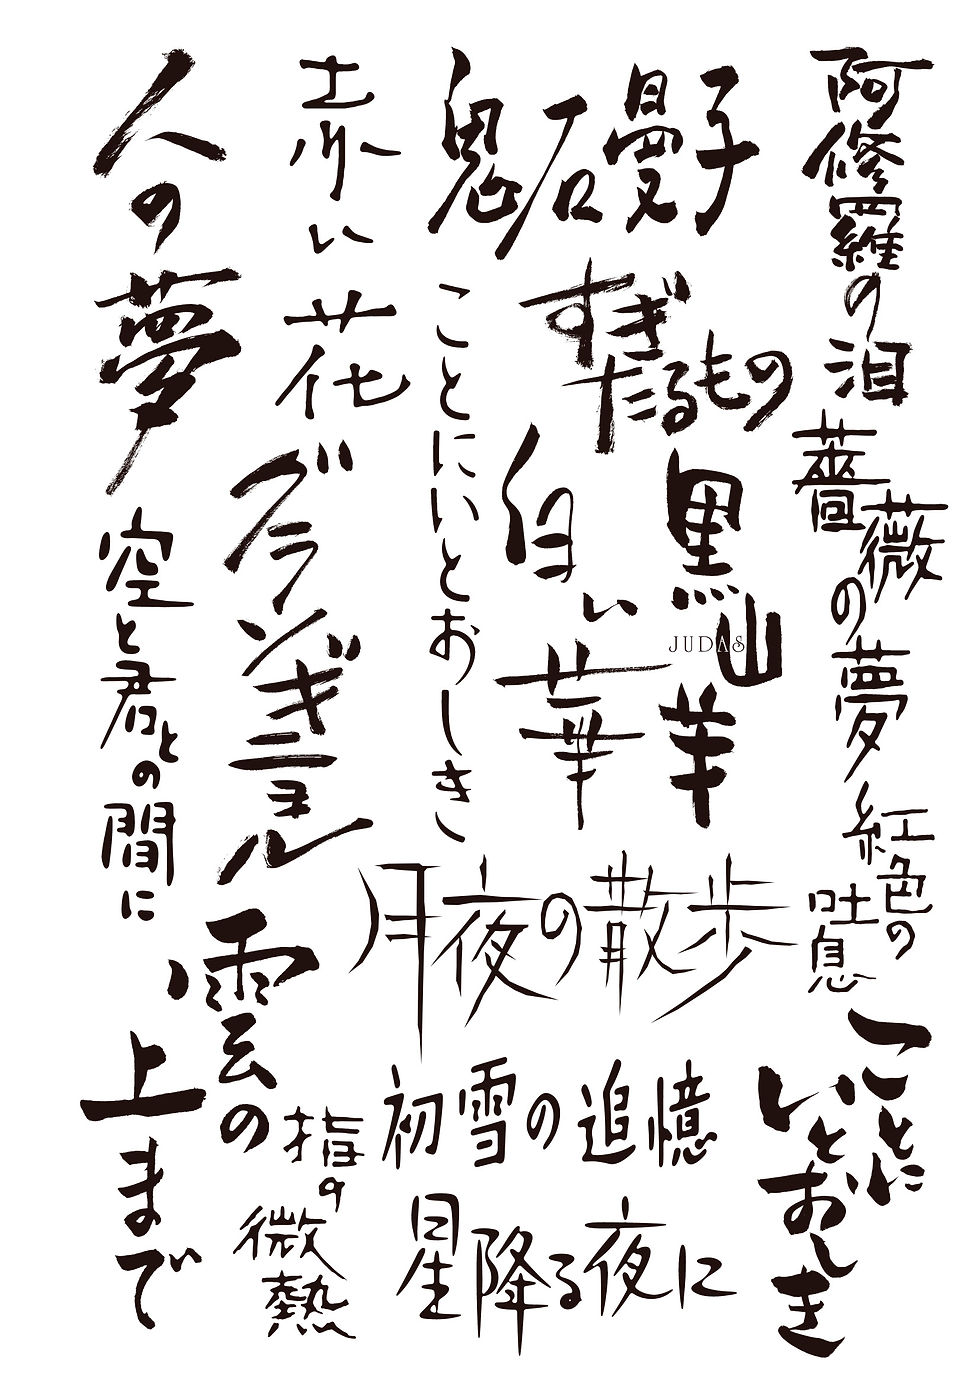 阿修羅の泪
薔薇の夢
紅色の
吐息
鬼石曼子
すぎ
たるもの
黒山羊
JUDAS
白い華
ことにいとおしき
赤い花
グランギニョル
人の夢
空と君との間に
月夜の散歩
雲の
上まで
初雪の追憶
指の
微熱
星降る夜に
ことに
いとおしき